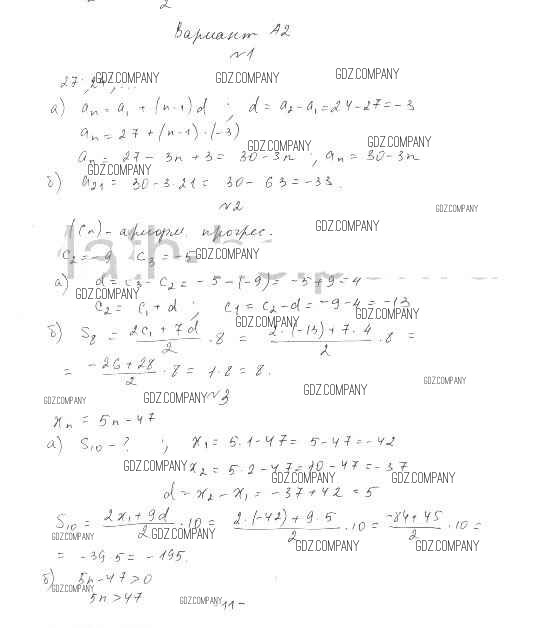 2
Вариант А2
№1
27; 24, ...
а) aₙ = a₁ + (n-1)d ; d = a₂ - a₁ = 24 - 27 = -3
aₙ = 27 + (n-1)·(-3)
aₙ = 27 - 3n + 3 = 30 - 3n ; aₙ = 30 - 3n
б) a₂₁ = 30 - 3·21 = 30 - 63 = -33.
№2
(cₙ) - арифм. прогрес.
c₂ = -9 c₃ = -5
а) d = c₃ - c₂ = -5 - (-9) = -5 + 9 = 4
c₂ = c₁ + d ; c₁ = c₂ - d = -9 - 4 = -13
б) S₈ = (2c₁ + 7d)/2 · 8 = (2·(-13) + 7·4)/2 · 8 =
= (-26 + 28)/2 · 8 = 1·8 = 8.
№3
xₙ = 5n - 47
а) S₁₀ - ? ; x₁ = 5·1 - 47 = 5 - 47 = -42
x₂ = 5·2 - 47 = 10 - 47 = -37
d = x₂ - x₁ = -37 + 42 = 5
S₁₀ = (2x₁ + 9d)/2 · 10 = (2·(-42) + 9·5)/2 · 10 = (-84 + 45)/2 · 10 =
= -39·5 = -195.
б) 5n - 47 > 0
5n > 47
- 11 -
GDZ.COMPANY